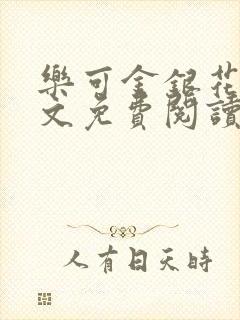 樂可金銀花
文免費閱讀
人有日天時